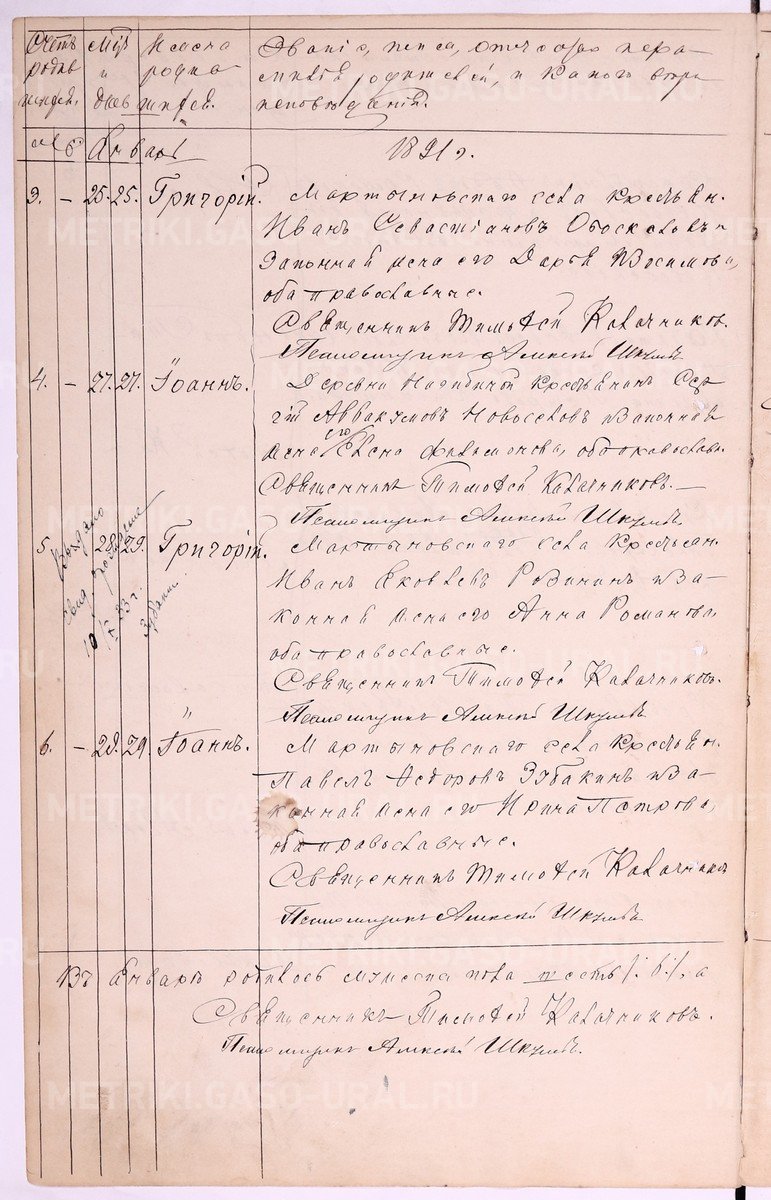 Счетъ родив шихся.
Мцъ и день
Имена родив шихся.
Званіе, имя, отчество и фа-
милія родителей, и какого вѣро
исповѣданія.
м. Январь 1891 г.
3. – 25. 25. Григорій. Мартыновскаго села крестьян.
Иванъ Севастіановъ и
Законная жена его Дарья Зосимова,
оба православные.
Священникъ Тимоѳей Калачниковъ.
Псаломщикъ Алексѣй
4. – 27. 27. Іоаннъ. Деревни крестьянинъ Сер
гій Аввакумовъ Новоселовъ и законная
жена его Елена Филимонова, оба православн.
Священникъ Тимоѳей Калачниковъ. –
Псаломщикъ Алексѣй
5 28. 29. Григорій. Мартыновскаго села крестьян.
Выдано
Свид.
10/IX 23 г.
Иванъ Яковлевъ и за-
конная жена его Анна Романова,
оба православные.
Священникъ Тимоѳей Калачниковъ.
Псаломщикъ Алексѣй
6. – 28. 29. Іоаннъ. Мартыновскаго села крестьян.
Павелъ Ѳедоровъ Зубакинъ и за-
конная жена его Ирина Петрова,
оба православные.
Священникъ Тимоѳей Калачниковъ
Псаломщикъ Алексѣй
Въ Январѣ родилось мужеска пола шесть /: 6 :/, а
Священникъ Тимоѳей Калачниковъ.
Псаломщикъ Алексѣй
METRIKI.GASO-URAL.RU